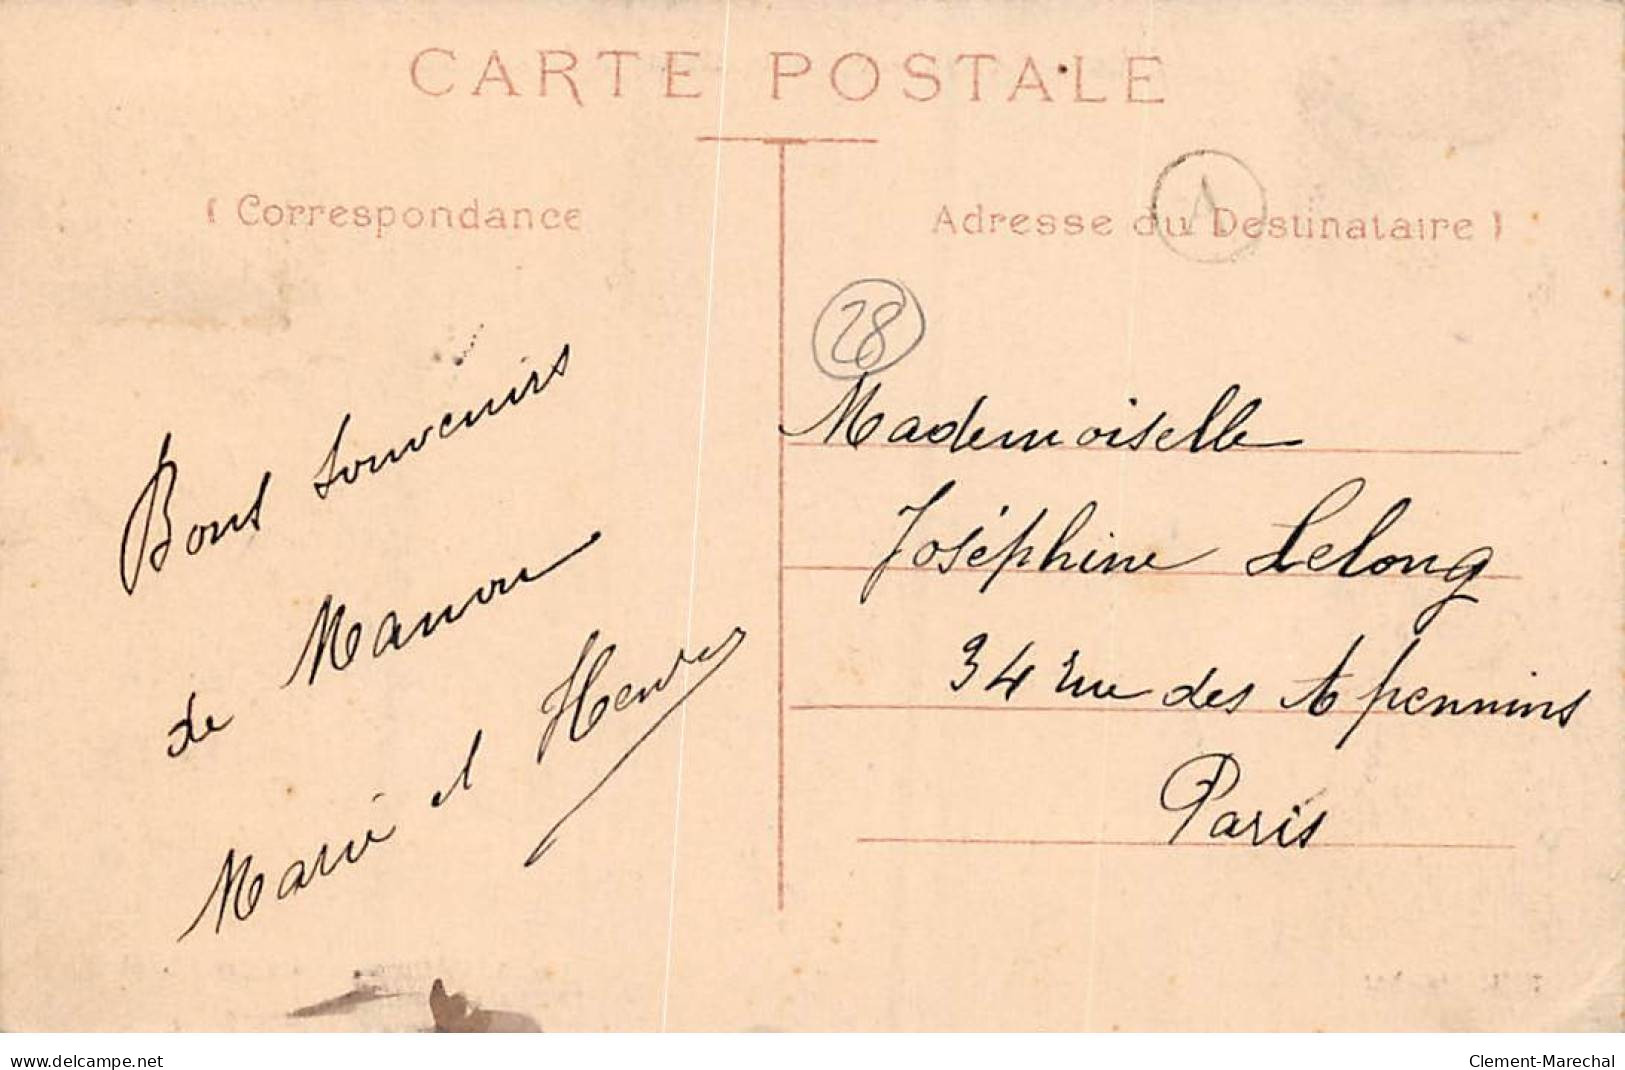 CARTE POSTALE
Correspondance
Adresse du Destinataire
A
28
Bons souvenirs
de Manou
Marie et Henri
Mademoiselle
Joséphine Lelong
34 rue des Apennins
Paris
www.delcampe.net
Clement-Marechal